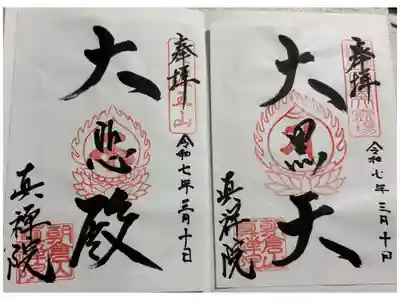 奉拝
令和七年三月十日
大黒天
真禅院
奉拝
令和七年三月十日
大悲殿
真禅院